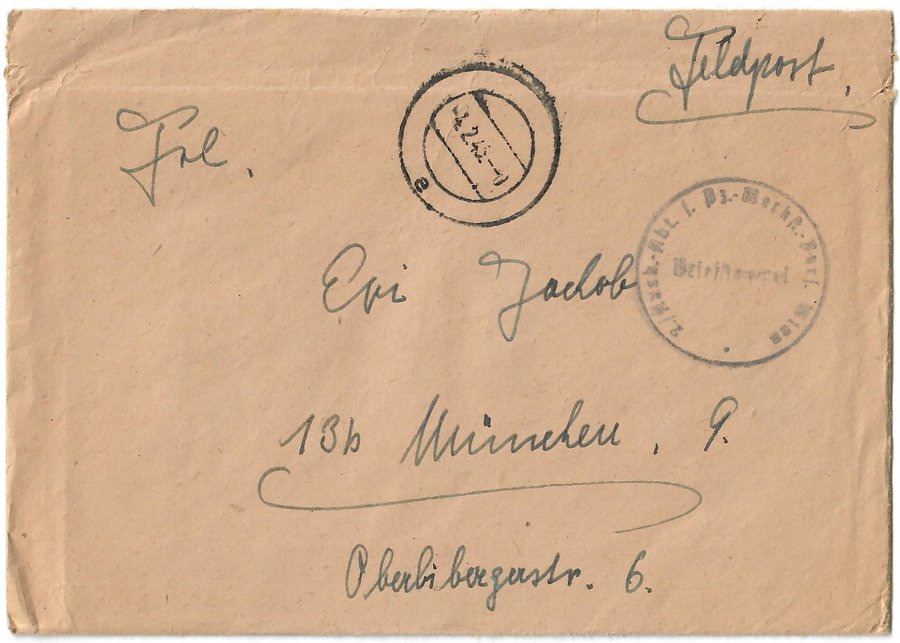 Feldpost.
Frl.
4.2.45.-
a
2./Ausb.-Abt. f. Pz.-Werkst.- Wien
Briefstempel
Evi Jackob
13b München, 9.
Oberbibergerstr. 6.